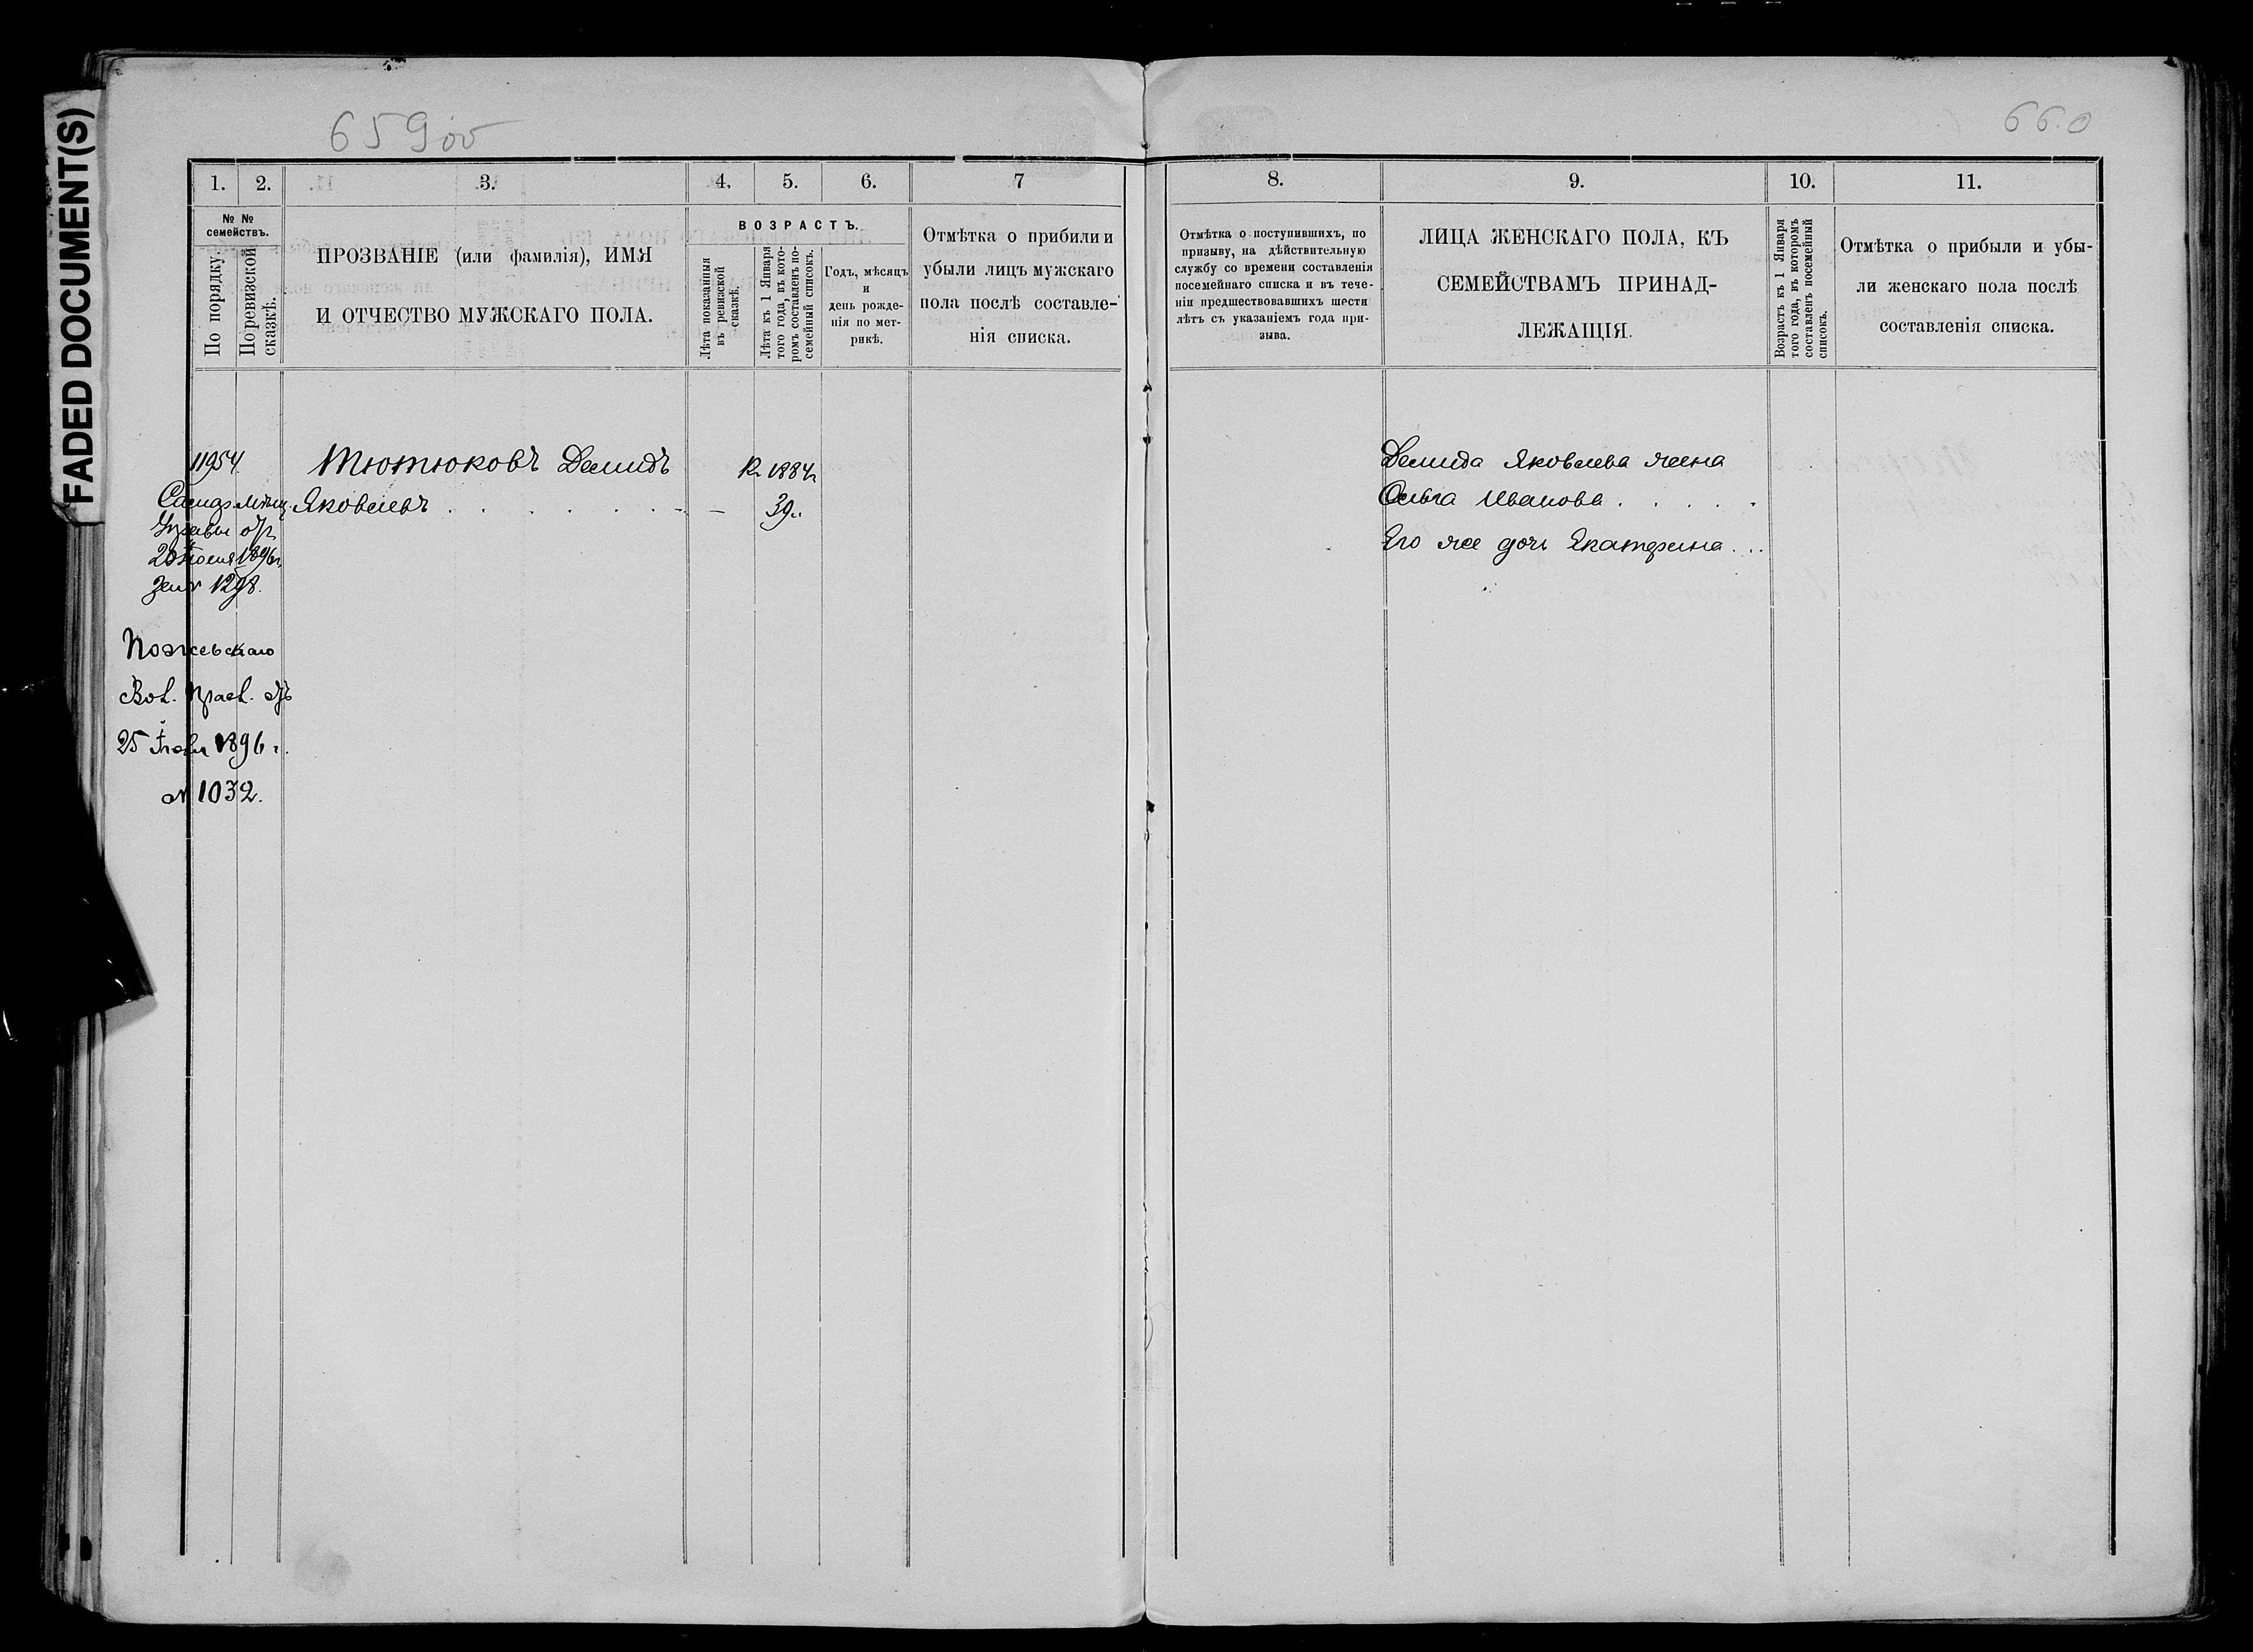 FADED DOCUMENT(S)
659 об
660
1.
2.
3.
4.
5.
6.
7
8.
9.
10.
11.
№ №
семействъ.
По порядку.
По ревизской
сказкѣ.
ПРОЗВАНІЕ (или фамилія), ИМЯ
И ОТЧЕСТВО МУЖСКАГО ПОЛА.
ВОЗРАСТЪ.
Лѣта показанныя
въ ревизской
сказкѣ.
Лѣта къ 1 Января
того года, въ кото-
ромъ составленъ по-
семейный списокъ.
Годъ, мѣсяцъ
и
день рожде-
нія по мет-
рикѣ.
Отмѣтка о прибили и
убыли лицъ мужскаго
пола послѣ составле-
нія списка.
Отмѣтка о поступившихъ, по
призыву, на дѣйствительную
службу со времени составленія
посемейнаго списка и въ тече-
ніи предшествовавшихъ шести
лѣтъ съ указаніемъ года при-
зыва.
ЛИЦА ЖЕНСКАГО ПОЛА, КЪ
СЕМЕЙСТВАМЪ ПРИНАД-
ЛЕЖАЩІЯ.
Возрастъ къ 1 Января
того года, въ которомъ
составленъ посемейный
списокъ.
Отмѣтка о прибыли и убы-
ли женскаго пола послѣ
составленія списка.
11954.
Тютюковъ Демидъ
К 1884г
Яковлевъ . . . . . . - —
39.
мѣщ.
Управы
1896г.
1298.
Вол. Прав.
25 1896 г.
№ 1032.
Демида Яковлева жена
Ольга Иванова . . . . .
Его же дочь Екатерина . . .